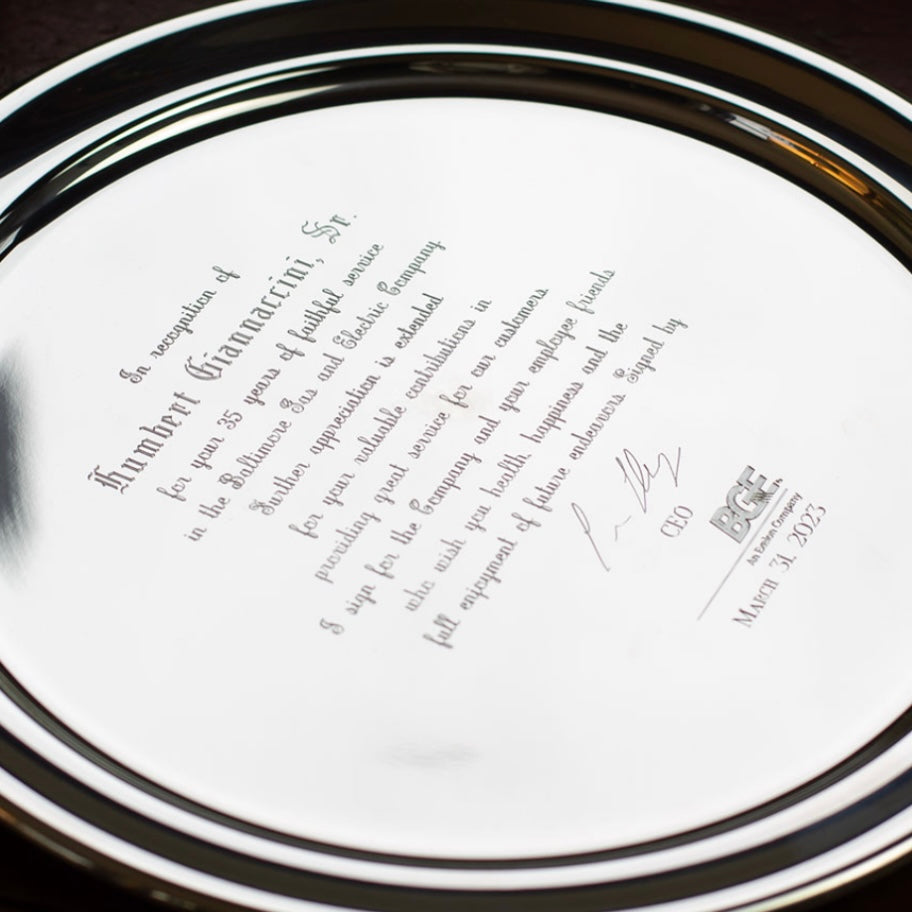 In recognition of
Humbert Giannaccini, Sr.
for your 35 years of faithful service
in the Baltimore Gas and Electric Company
Further appreciation is extended
for your valuable contributions in
providing great service for our customers.
I sign for the Company and your employee friends
who wish you health, happiness and the
full enjoyment of future endeavors Signed by
CEO
BGE
An Exelon Company
MARCH 31, 2023